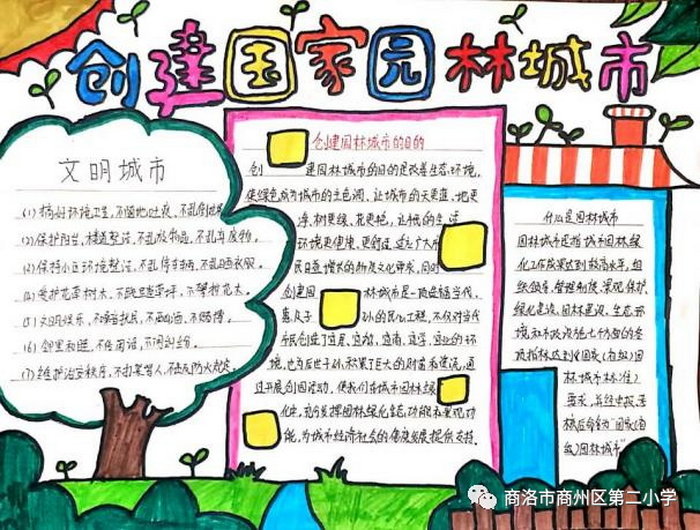 创建国家园林城市
文明城市
(1) 搞好环境卫生,不随地吐痰,不乱倒垃圾
(2) 保护阳台,楼道整洁,不乱放物品,不乱弃废物。
(3) 保持小区环境整洁,不乱停车辆,不乱晒衣服。
(4) 爱护花草树木,不践踏草坪,不攀折花木。
(5) 文明娱乐,不噪音扰民,不酗酒,不赌博。
(6) 邻里和睦,不传闲话,不闹纠纷。
(7) 维护治安秩序,不打架骂人
创建园林城市的目的
创 建园林城市的目的是改善生态环境,
使绿色成为城市的主色调,让城市的天更蓝,地更
净,树更绿,花更艳,让市民的生活
环境更健康,更舒适,适应广大市
民日益增长的物质文化需求,同时
创建国 林城市是一项造福当代,
惠及子 孙的民心工程,不仅对当代
市民创造了宜居,宜游,宜商,宜学,宜业的环
境,也为后世子孙积累了巨大的财富和资源,通
过开展创园活动,使我们在城市园林绿
化中,充分发挥园林绿化生态功能和景观功
能,为城市经济社会的健康发展提供支持。
什么是园林城市
园林城市是指城市园林绿
化工作成果达到较高水平,组
织领导,管理制度,景观保护,
绿化建设,园林建设,生态环
境,和市政设施七个方面的各
项指标达到《国家(省级)园
林城市标准》
要求,并经申报考
核后命名为“国家(省
级)园林城市”
商洛市商州区第二小学